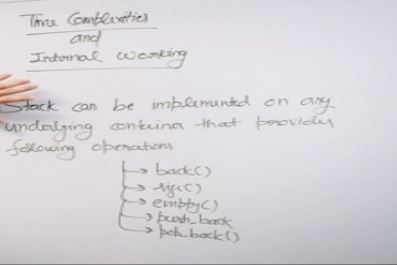 Time Complexities
and
Internal Working
Stack can be implemented on any
underlying container that provides
following operations
back()
size()
empty()
push_back
pop_back()